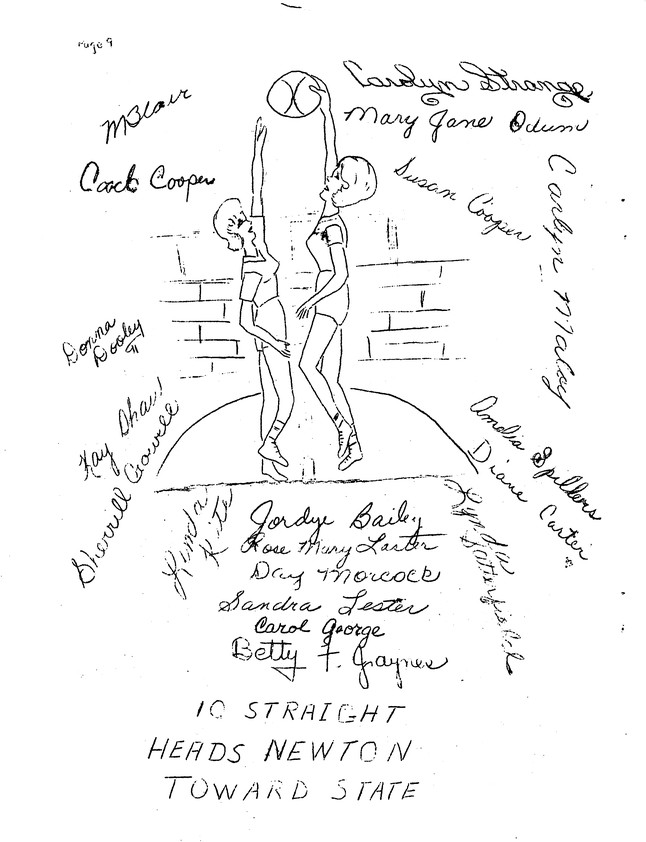 Page 9
Carolyn Strange
MBlair
Mary Jane Odum
Coach Cooper
Susan Cooper
Carlyn Maloy
Donna
Dooley
Kay
Sherrill Crowell
Linda
Kite
Spillers
Diane Carter
Lynda
Jordye Bailey
Rose Mary Larter
Day Morcock
Sandra Lester
Carol George
Betty F. Jaynes
10 STRAIGHT
HEADS NEWTON
TOWARD STATE